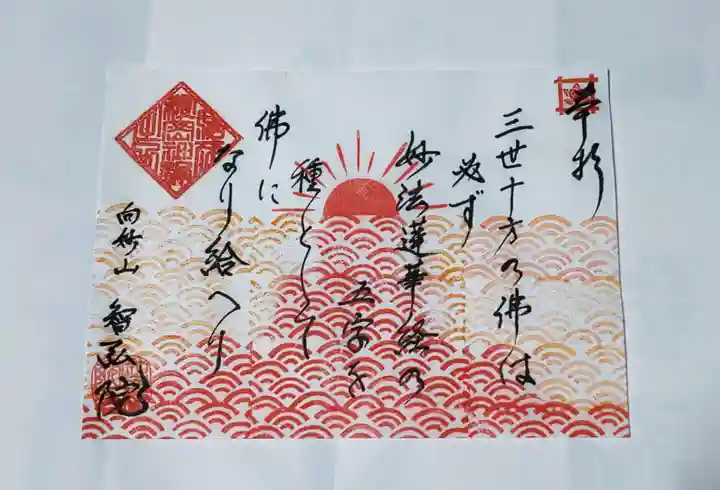 奉拝
三世十方の佛は
必ず
妙法蓮華経の
五字を
種として
佛に
なり給へり
向妙山
智函院